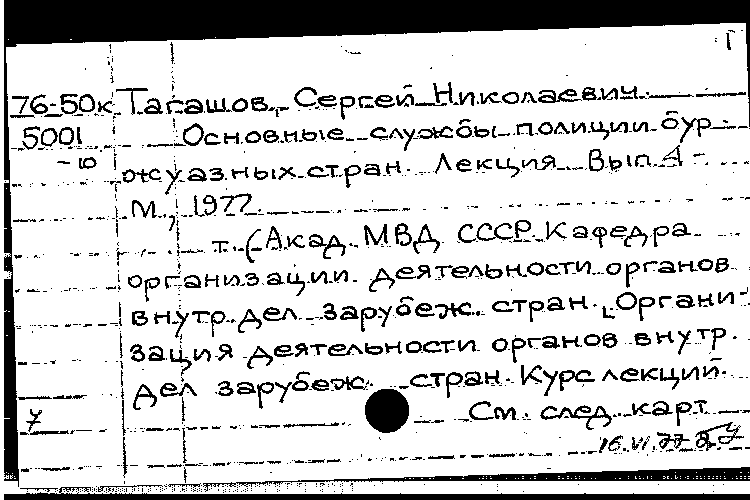 Т
76-50к Тагашов, Сергей Николаевич.
5001 Основные службы полиции бур-
-10 жуазных стран. Лекция Вып 1-
М., 1977
т. (Акад. МВД СССР Кафедра
организации деятельности органов
внутр. дел зарубеж. стран. Органи-
зация деятельности органов внутр.
дел зарубеж. стран. Курс лекций.
7 См. след. карт
16.VI.77